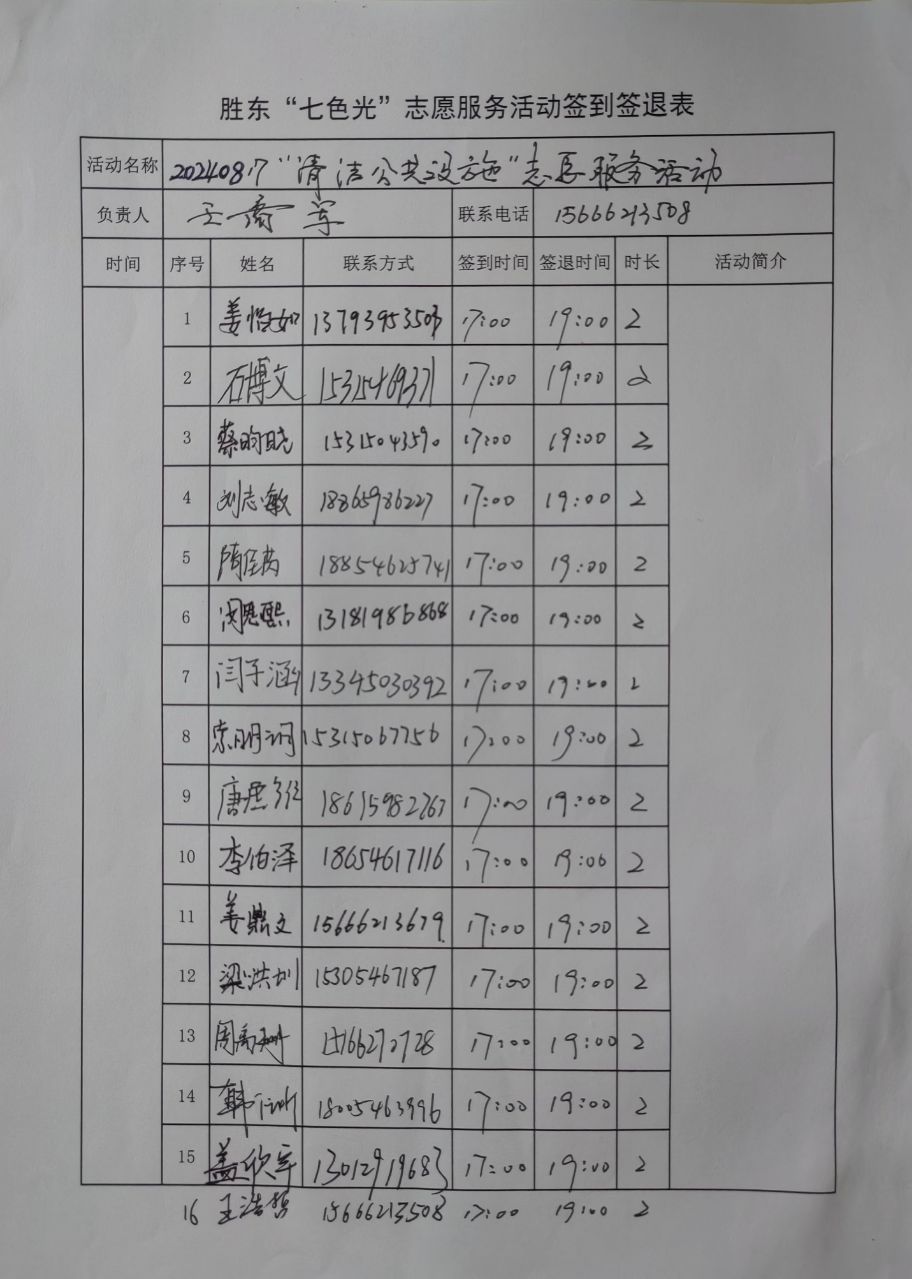 胜东“七色光”志愿服务活动签到签退表
活动名称 20240817“清洁公共设施”志愿服务活动
负责人 联系电话 15666213508
时间 序号 姓名 联系方式 签到时间 签退时间 时长 活动简介
1 姜怡如 13793953503 17:00 19:00 2
2 石博文 15315469371 17:00 19:00 2
3 蔡昀晓 15315043590 17:00 19:00 2
4 刘志敏 18865986227 17:00 19:00 2
5 18854625741 17:00 19:00 2
6 闵思熙 13181986868 17:00 19:00 2
7 闫子涵 13345030392 17:00 19:00 2
8 15315067756 17:00 19:00 2
9 18615982767 17:00 19:00 2
10 李伯泽 18654617116 17:00 19:00 2
11 姜鼎文 15666213679 17:00 19:00 2
12 梁洪 15305467187 17:00 19:00 2
13 周 15166272728 17:00 19:00 2
14 韩 18005463996 17:00 19:00 2
15 盖欣 13012919683 17:00 19:00 2
16 王浩哲 15666213508 17:00 19:00 2